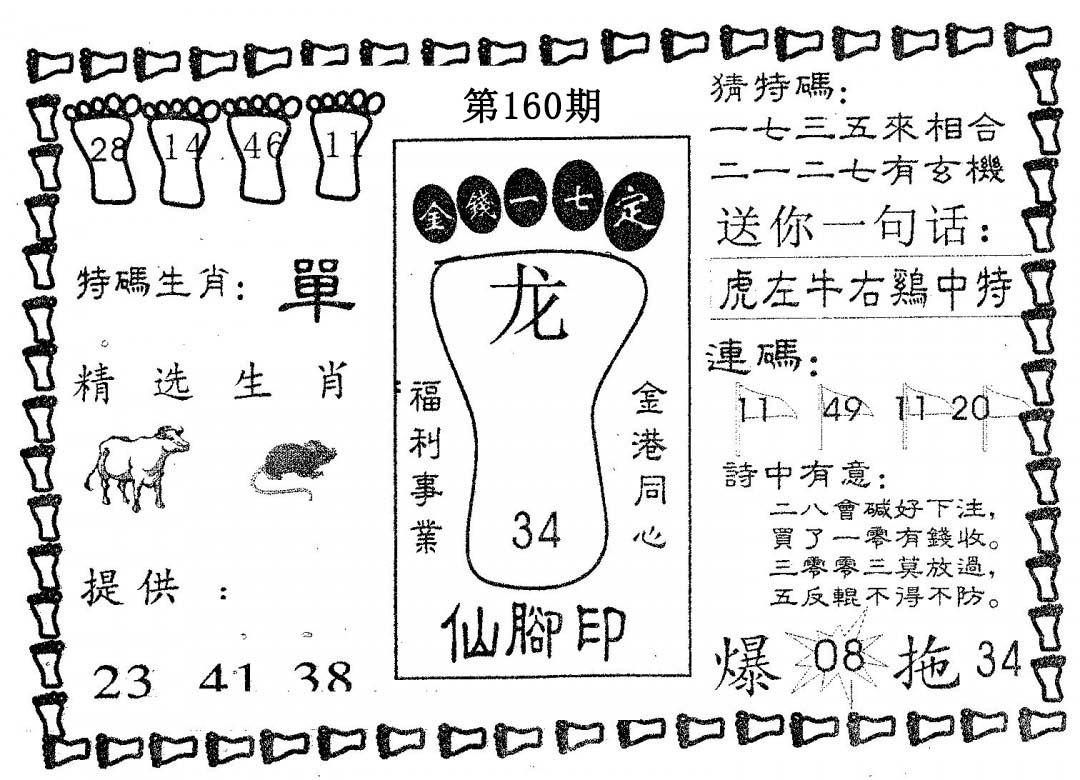 第160期
28 14 46 11
特碼生肖：單
精选生肖
提供：
23 41 38
金錢一七定
龙
福利事業
金港同心
34
仙腳印
猜特碼：
一七三五來相合
二一二七有玄機
送你一句话：
虎左牛右鷄中特
連碼：
11 49 11 20
詩中有意：
二八會碱好下注，
買了一零有錢收。
三零零三莫放過，
五反輥不得不防。
爆 08 拖 34